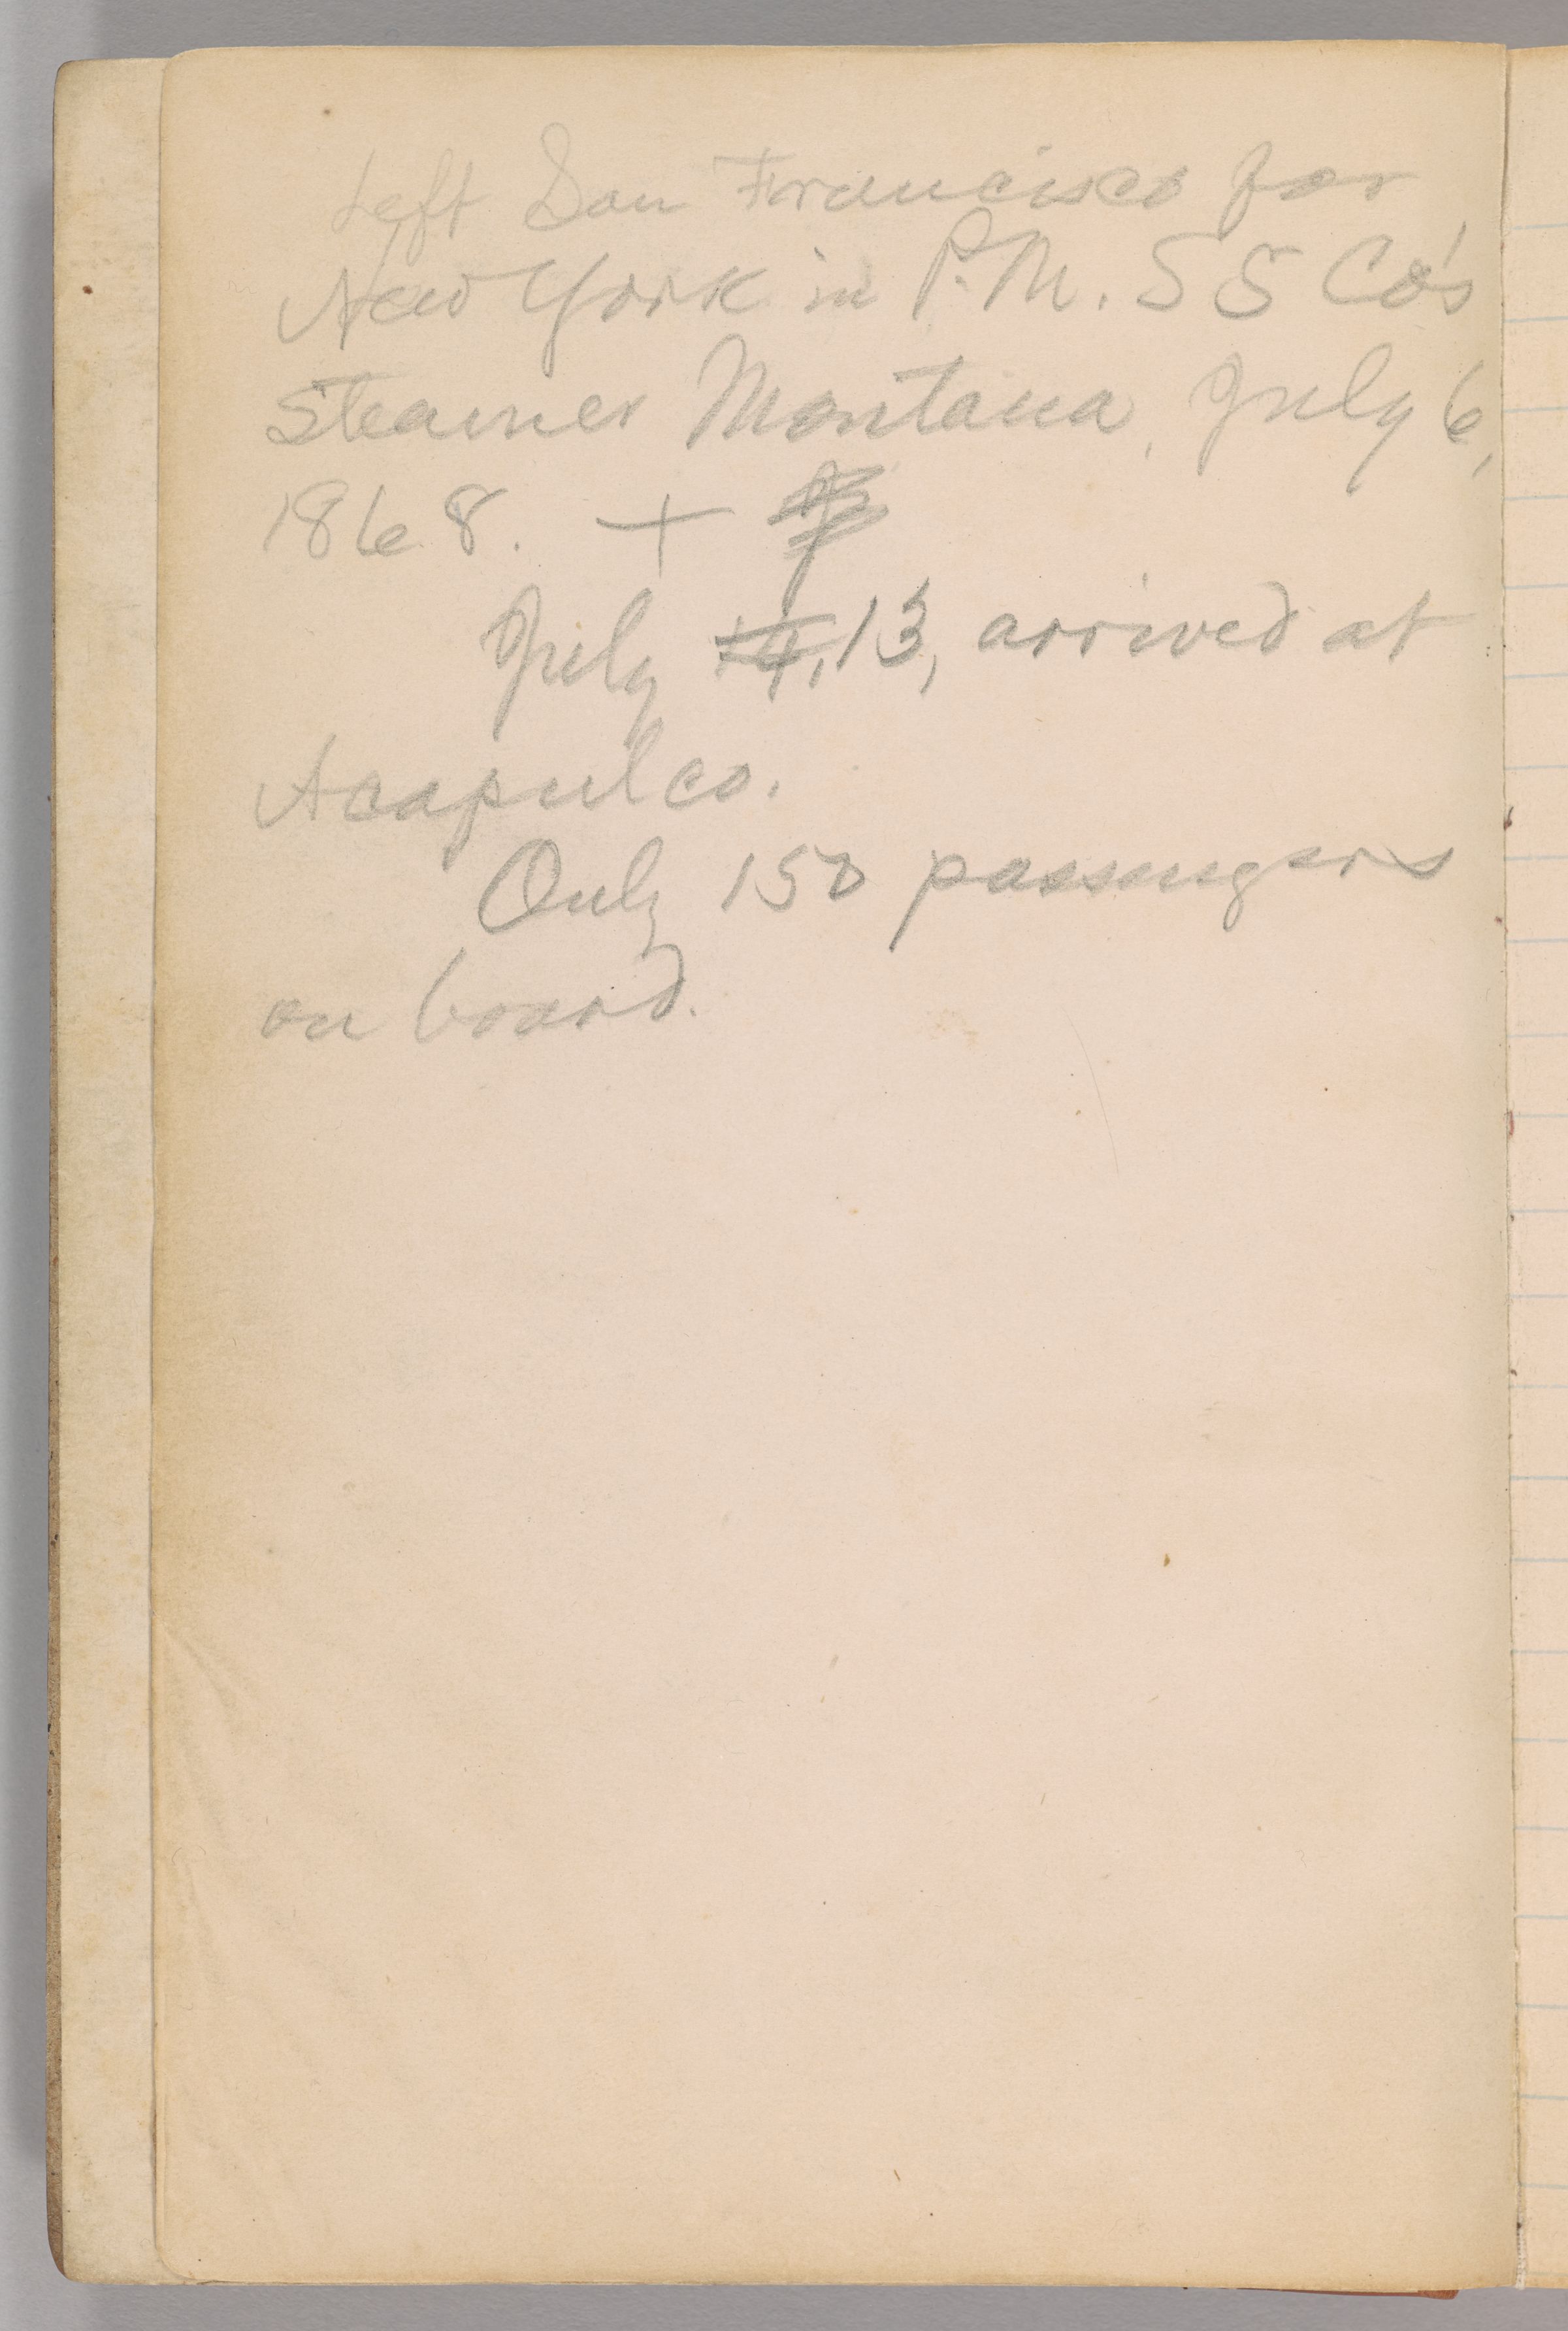 Left San Francisco for
New York in P.M. S S Co's
Steamer Montana, July 6,
1868. +
July 14, 13, arrived at
Acapulco.
Only 150 passengers
on board.